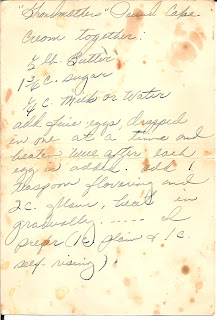 "Grandmothers" Pound Cake
Cream together:
½ lb. Butter
1 ¾ C. Sugar
¼ C. Milk or Water
add five eggs, dropped
in one at a time and
beaten well after each
egg is added. add 1
teaspoon flavoring and
2 C. flour, beat in
gradually..... I
prefer (1 C plain & 1 C.
self-rising).